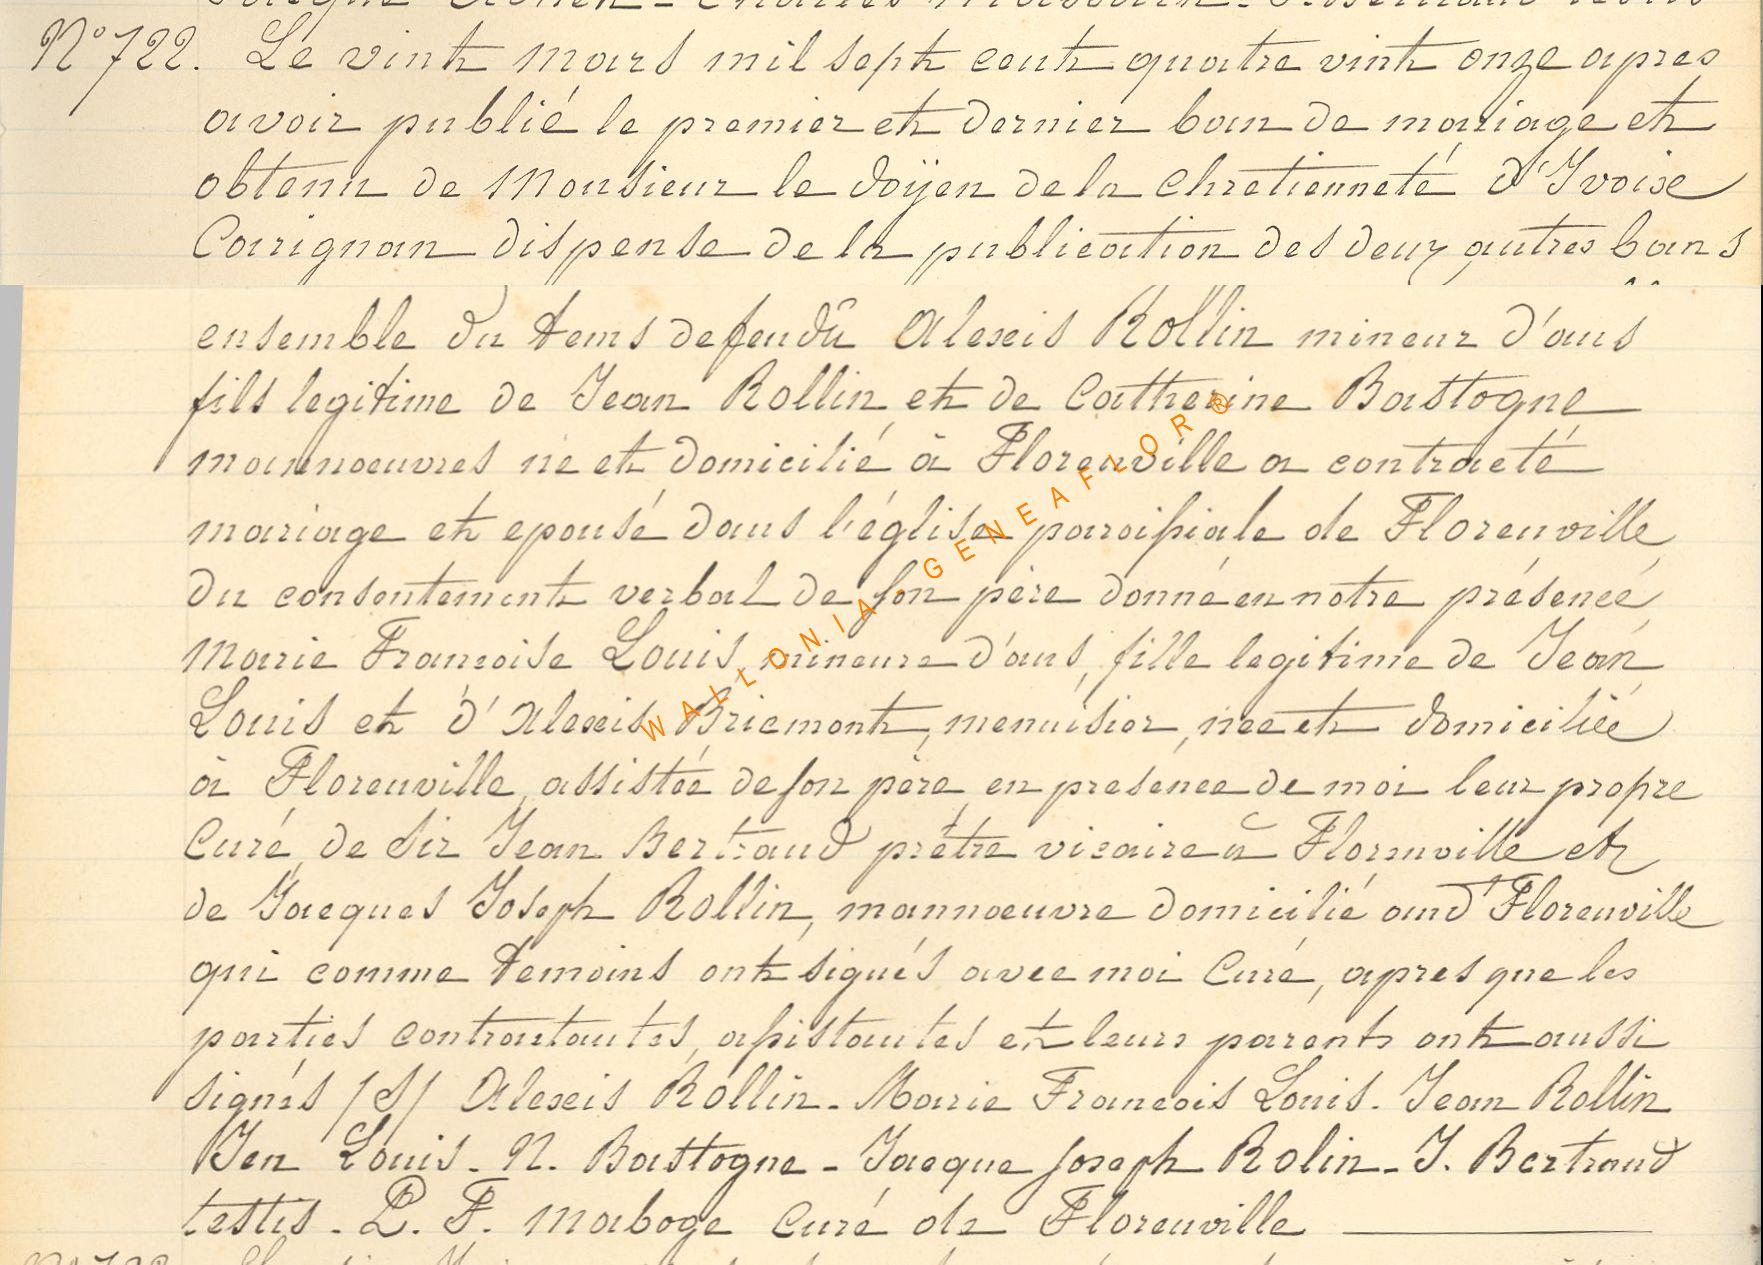 N° 722. Le vint mars mil sept cent quatre vint onze apres
avoir publié le premier et dernier ban de mariage et
obtenu de Monsieur le doÿen de la Chretienneté d'Yvoise
Carignan dispense de la publication des deux autres bans
ensemble du tems defendû Alexis Rollin mineur d'ans
fils legitime de Jean Rollin et de Catherine Bastogne
mannoeuvres né et domicilié à Florenville a contracté
mariage et epousé dans l'église paroissiale de Florenville,
du consentement verbal de son père donné en notre présence,
Marie Francoise Louis, mineure d'ans, fille legitime de Jean
Louis et d'Alexis Bricmont, menuisier, née et domiciliée
à Florenville, assistée de son père, en presence de moi leur propre
Curé, de Sir Jean Bertrand prêtre vicaire à Florenville et
de Jacques Joseph Rollin, mannoeuvre domicilié aud Florenville
qui comme temoins ont signés avec moi Curé, apres que les
parties contractantes, assistantes et leurs parents ont aussi
signés /S/ Alexis Rollin - Marie Francois Louis. Jean Rollin
Jen Louis - N. Bastogne - Jacque Joseph Rolin - J. Bertrand
testis - P. F. Maboge Curé de Florenville
WALLONIA - GENEAFLOR ®